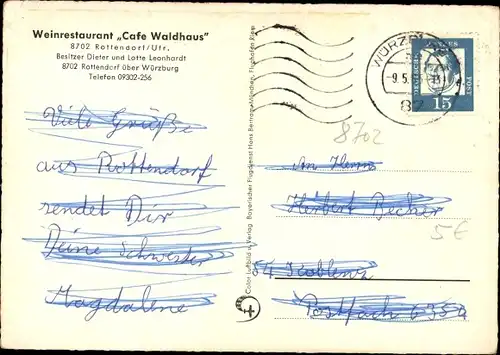 Weinrestaurant „Cafe Waldhaus"
8702 Rottendorf/Ufr.
Besitzer Dieter und Lotte Leonhardt
8702 Rottendorf über Würzburg
Telefon 09302-256
Viele Grüße
aus Rottendorf
sendet Dir
Deine Schwester
Magdalene
Color Luftbild u. Verlag: Bayerischer Flugdienst Hans Bertram München, Flughafen Riem
WÜRZB
-9.5.
87
DEUTSCHE
POST
15
8702
An Herrn
Herbert Becher
5€
54 Koblenz
Postfach 6359